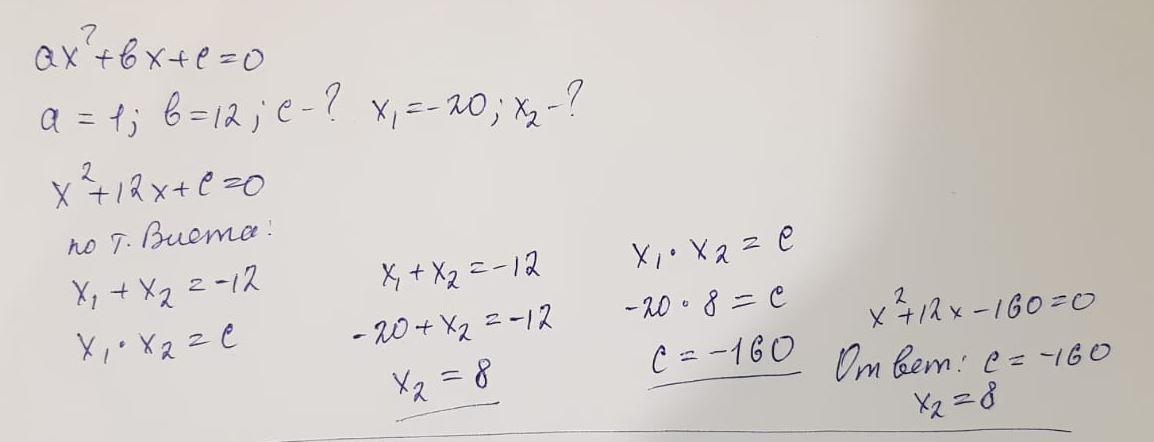 ax²+вx+c=0
a = 1; в=12; c-? x₁=-20; x₂-?
x²+12x+c=0
по т. Виета:
x₁ + x₂ = -12
x₁ · x₂ = c
x₁ + x₂ = -12
-20 + x₂ = -12
x₂ = 8
x₁ · x₂ = c
-20 · 8 = c
c = -160
x²+12x-160=0
Ответ: c = -160
x₂ = 8